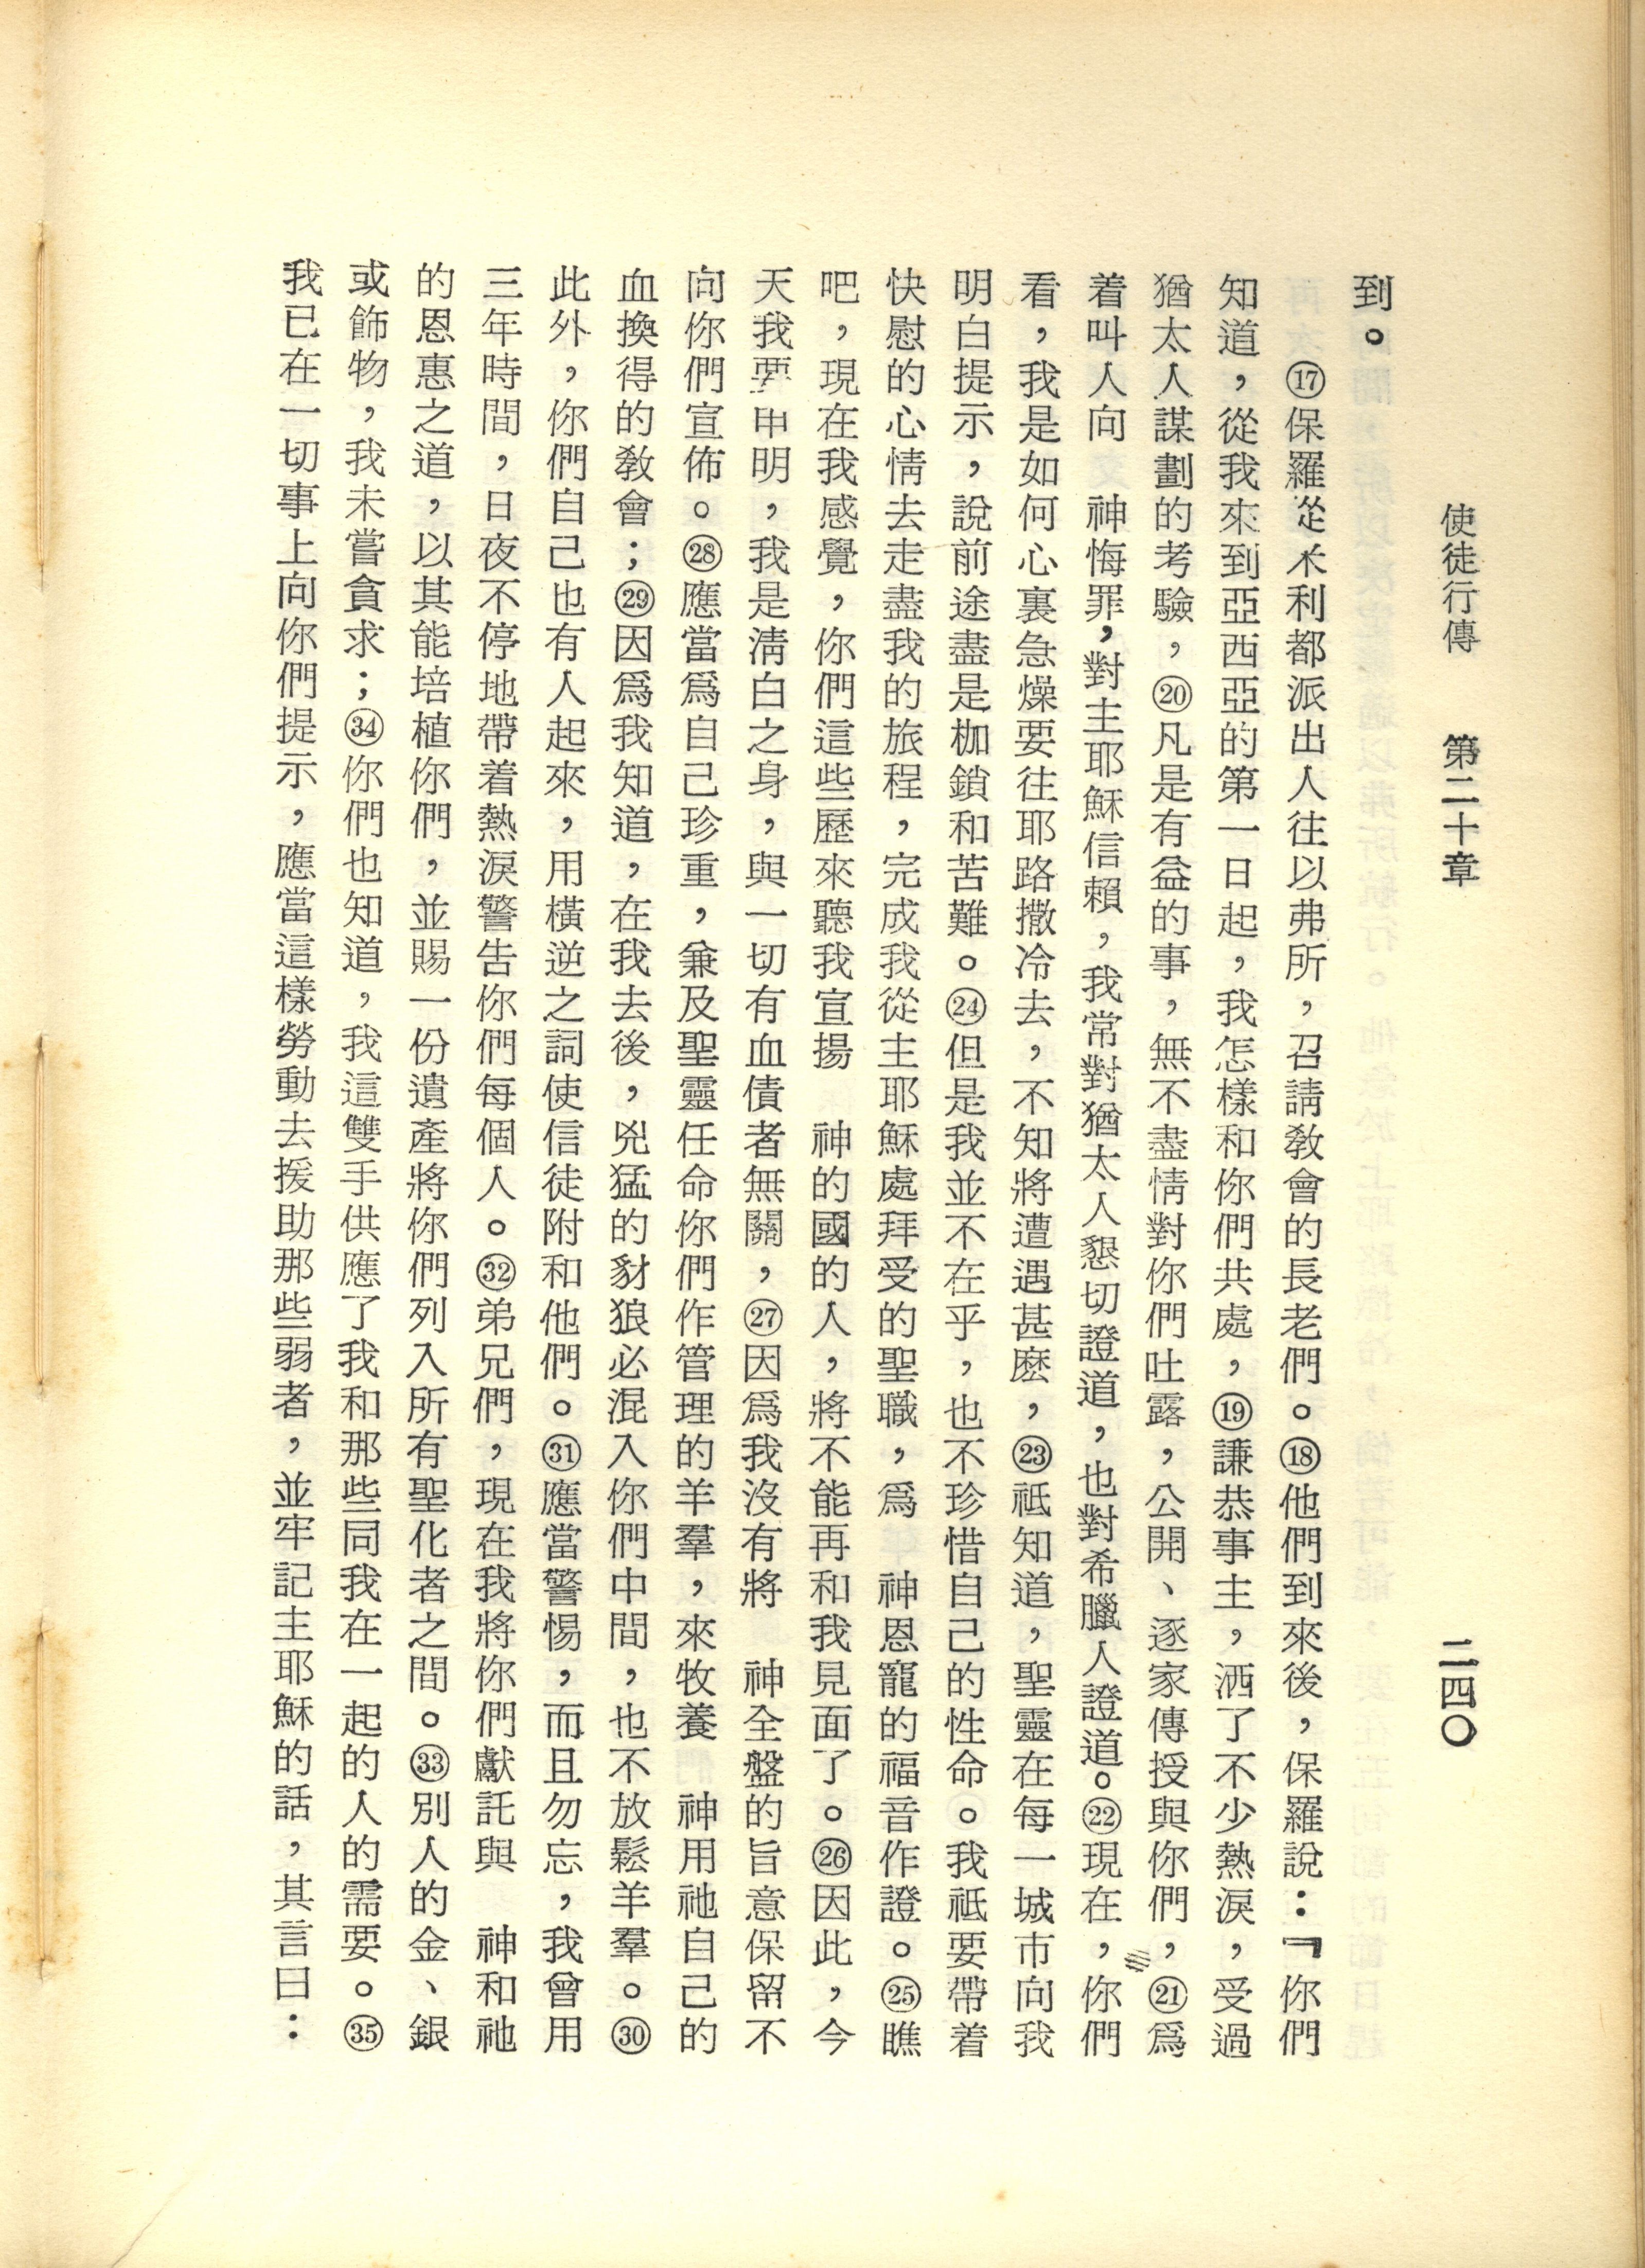 使徒行傳　第二十章　二四〇
到。
⑰保羅從米利都派出人往以弗所，召請教會的長老們。⑱他們到來後，保羅說：『你們
知道，從我來到亞西亞的第一日起，我怎樣和你們共處，⑲謙恭事主，洒了不少熱淚，受過
猶太人謀劃的考驗，⑳凡是有益的事，無不盡情對你們吐露，公開、逐家傳授與你們，㉑爲
着叫人向　神悔罪，對主耶穌信賴，我常對猶太人懇切證道，也對希臘人證道。㉒現在，你們
看，我是如何心裏急燥要往耶路撒冷去，不知將遭遇甚麽，㉓祗知道，聖靈在每一城市向我
明白提示，說前途盡是枷鎖和苦難。㉔但是我並不在乎，也不珍惜自己的性命。我祗要帶着
快慰的心情去走盡我的旅程，完成我從主耶穌處拜受的聖職，爲　神恩寵的福音作證。㉕瞧
吧，現在我感覺，你們這些歷來聽我宣揚　神的國的人，將不能再和我見面了。㉖因此，今
天我要申明，我是淸白之身，與一切有血債者無關，㉗因爲我沒有將　神全盤的旨意保留不
向你們宣佈。㉘應當爲自己珍重，兼及聖靈任命你們作管理的羊羣，來牧養　神用祂自己的
血換得的敎會；㉙因爲我知道，在我去後，兇猛的豺狼必混入你們中間，也不放鬆羊羣。㉚
此外，你們自己也有人起來，用橫逆之詞使信徒附和他們。㉛應當警惕，而且勿忘，我曾用
三年時間，日夜不停地帶着熱淚警告你們每個人。㉜弟兄們，現在我將你們獻託與　神和祂
的恩惠之道，以其能培植你們，並賜一份遺產將你們列入所有聖化者之間。㉝別人的金、銀
或飾物，我未嘗貪求；㉞你們也知道，我這雙手供應了我和那些同我在一起的人的需要。㉟
我已在一切事上向你們提示，應當這樣勞動去援助那些弱者，並牢記主耶穌的話，其言曰：